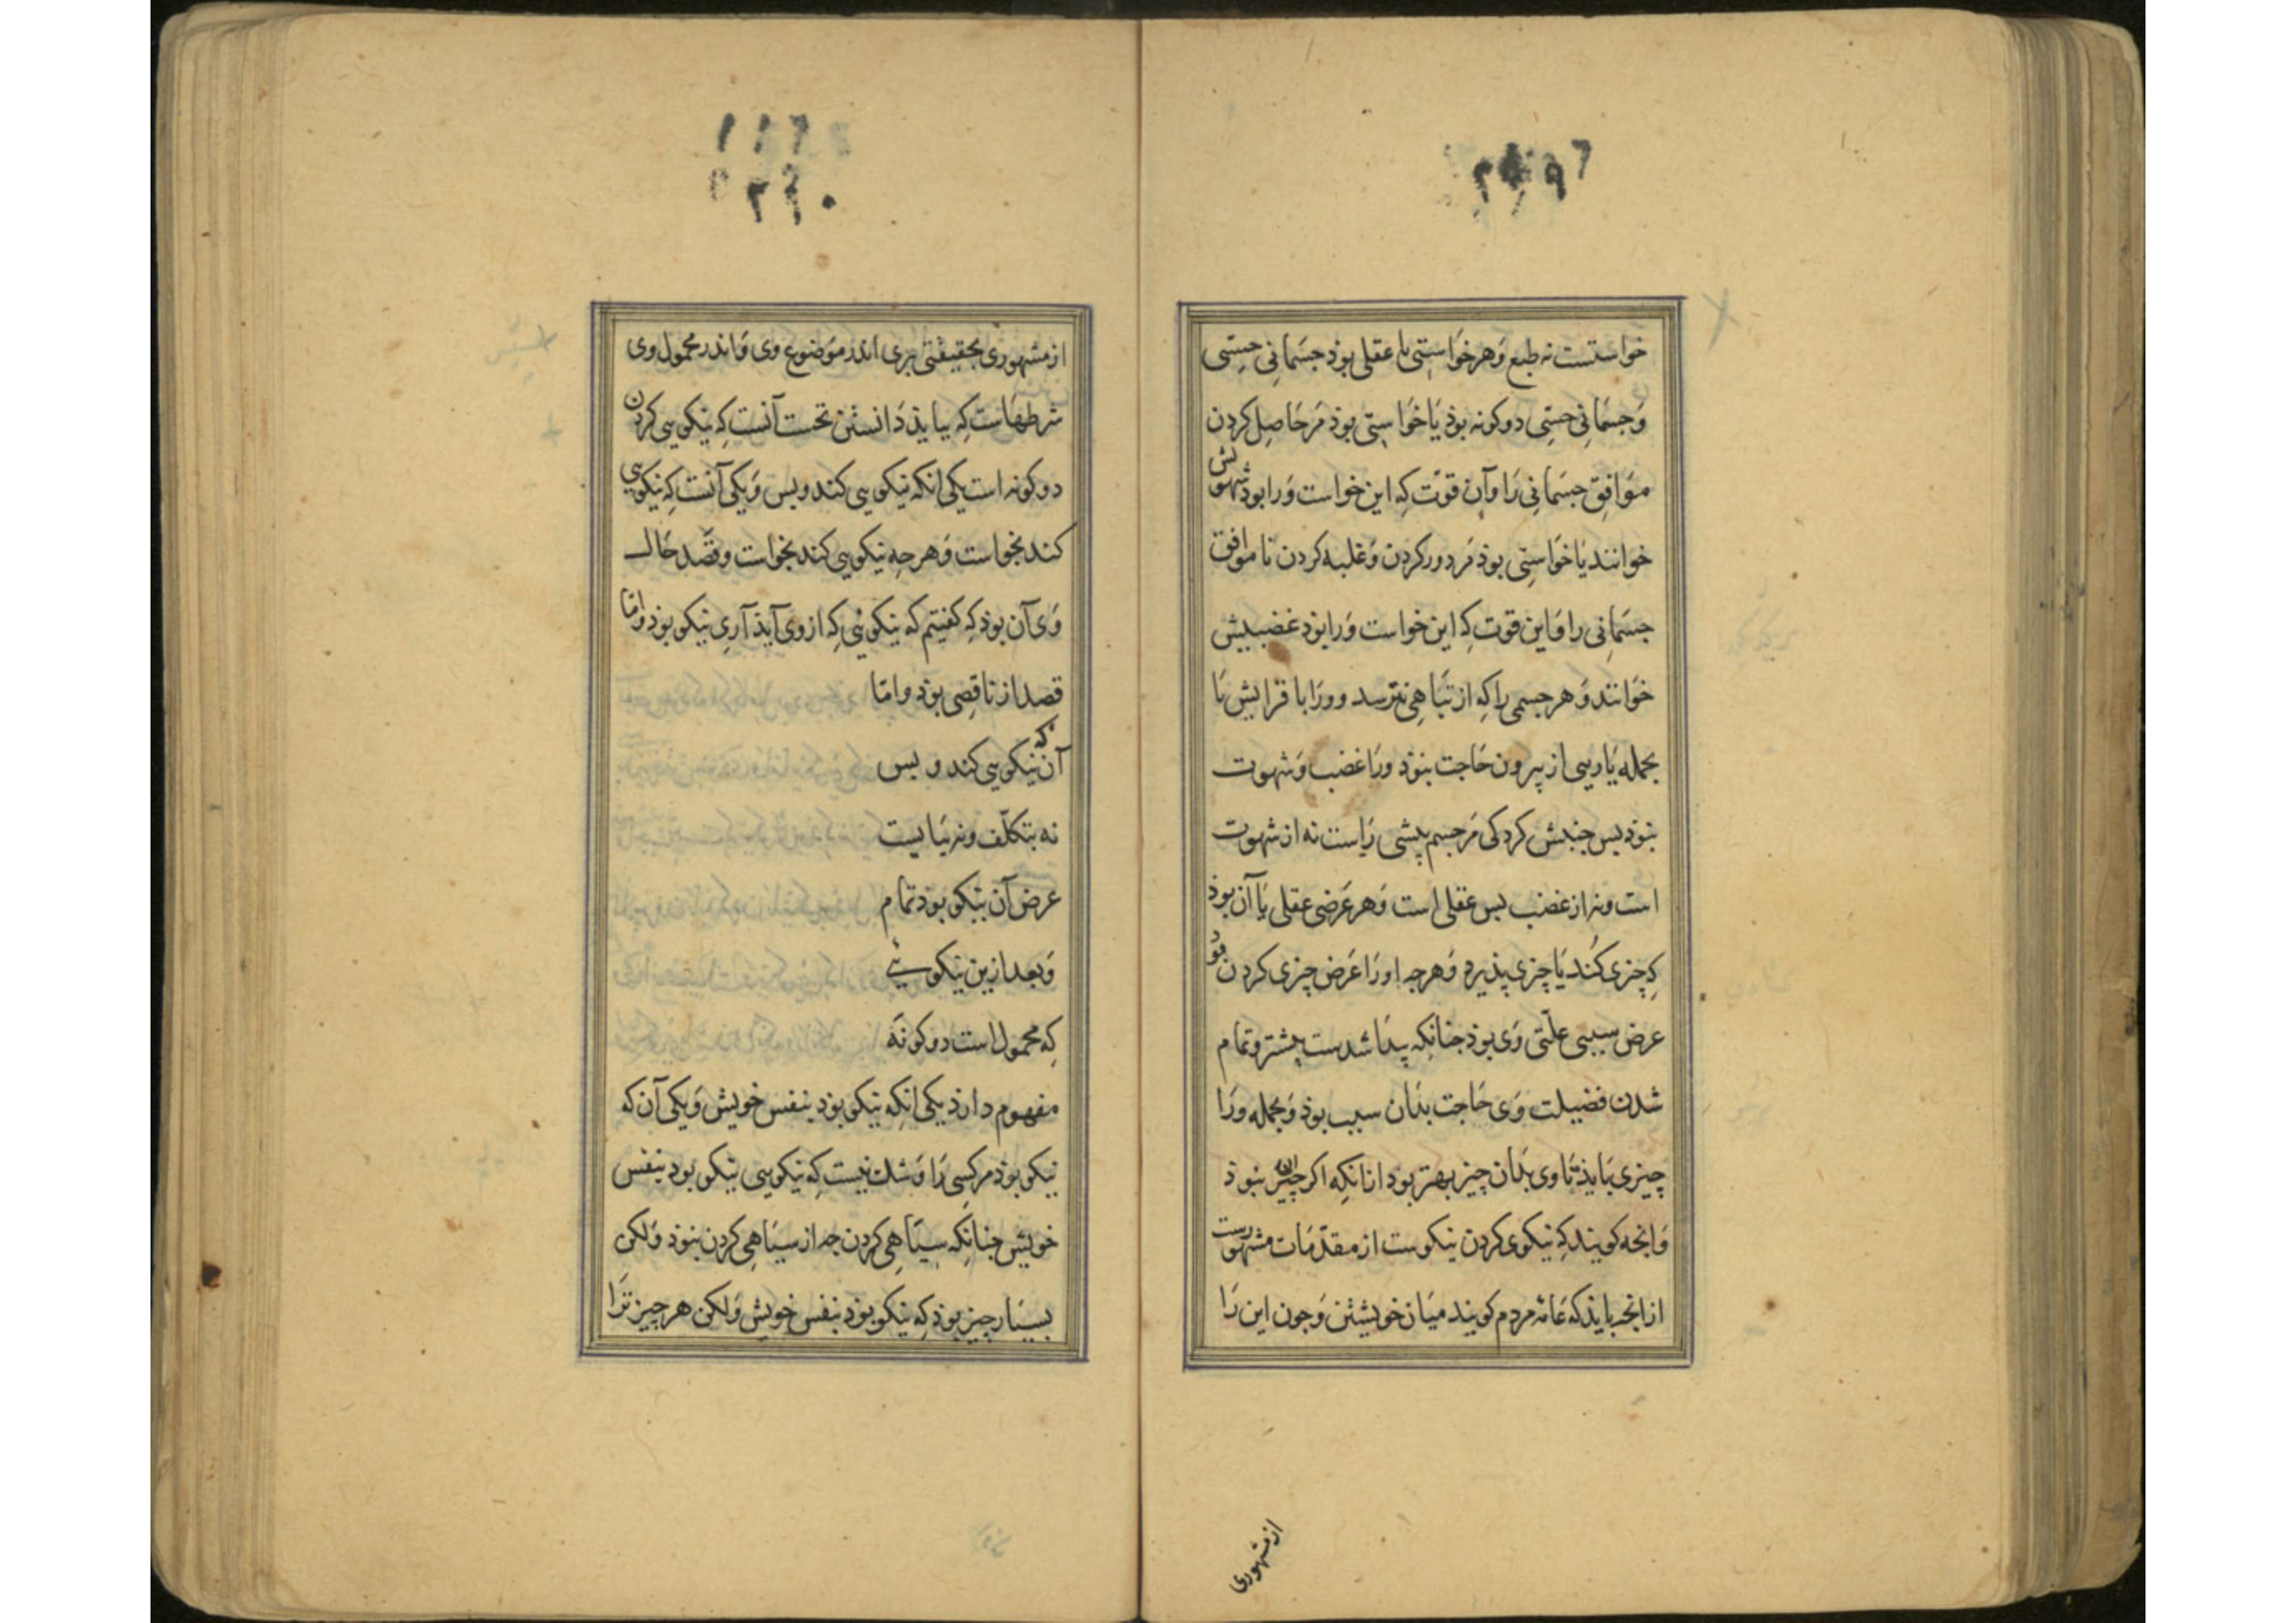 خواستست نه طبع وَهرخوَاستی یا عقلی بوذ جسَمانی حِسّی
وَجسَمانی حِسّی دوکونه بوذ یَا خوَاستی بوذ مَرحَاصِل کردن
موَافِق جسَمانی رَا وآن قوّت کِه این خواست وَرا بوذ شهوتش
خوانند یَا خوَاستِی بوذ مَر دورکردن وَغلبه کردن ناموافق
جسَمانِی را وَاین قوت کِه این خواست وَرا بوذ غضبیش
خوَانند وَهرجسمی راکِه از تبَاهِی نترسد وورَا با فزایش یَا
بجمله یَاریی از بیرون حَاجت نبوذ ورَا غضب وَشهوت
نبوذ بس جنبش کردکی مَرجسم پیشی رَاست نه از شهوت
است ونه از غضب بس عقلی است وَهرعَرضی عقلی یَا آن بوذ
کِه چیزی کُند یَا چیزی پذیرد وَهرچه اورَا عَرض چیزی کردن بوَد
عرض سببی علّتی وَی بوذ جنانکه پیدَا شدست بیشتر وتمام
شدن فضیلت وَی حَاجت بدَان سبب بوذ وَبجمله ورَا
چیزی بَایذ تَا وی بدَان چیز بهتر بود ازانکِه اکر آن چیز نبوذ
وَانجه کویند کِه نیکوی کردن نیکوست از مقدّمَات مشهورست
ازانجه بایذ که عَامّه مردم کویند میَان خویشتن وَجون این رَا
از مشهوری
۱۱٦
۲٦۰
از مشهوری بحقیقتی بری اندر موَضوع وی وَاندر محمول وی
شرطهَاست کِه ببایذ دَانستن نخست آنست کِه نیکویی کردن
دوکونه است یکی انکه نیکویی کند وبس وَیکی آنست کِه نیکویی
کند بخواست وَهرجِه نیکویی کند بخواست وقصَد حَال
وَی آن بوذ کِه کفتیم که نیکوئی کِه از وی آیذ آرِی نیکو بوذ وامّا
قصد از ناقصِی بوذ وامّا
آن که نیکویی کند و بس
نه بتکلّف ونه ببَایست
عرض آن نیکو بوذ تمام
وَبعد ازین نیکوئی
کِه محمول است دوکونَه
مفهوم دارذ یکی انکِه نیکو بوذ بنفس خویش وَیکی آن که
نیکو بوذ مرکسِی رَا وَشک نیست کِه نیکویی نیکو بود بنفس
خویش جنانِکه سیَاهِی کردن جه از سیَاهِی کردن نبوذ وَلکن
بسیَار چیز بوذ کِه نیکو بوذ بنفس خویش وَلکن هر چیز ترَا